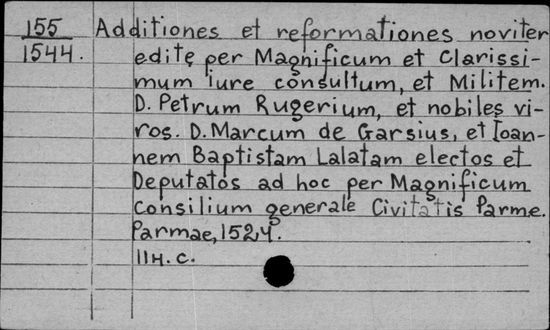 155 Additiones et reformationes noviter
1544. editę per Magnificum et Clarissi-
mum iure consultum, et Militem.
D. Petrum Rugerium, et nobiles vi-
ros. D. Marcum de Garsius, et Ioan-
nem Baptistam Lalatam electos et
Deputatos ad hoc per Magnificum
Consilium generale Civitatis Parme.
Parmae, 1524.
IIH. C.